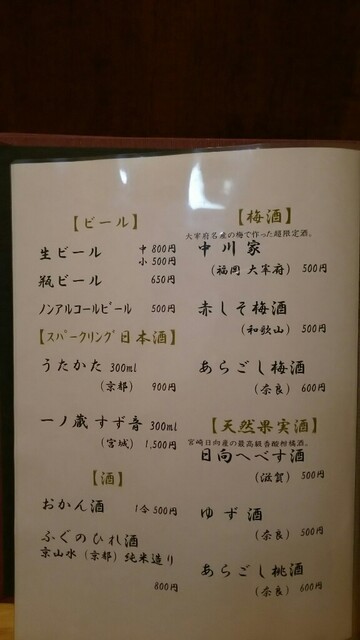 【ビール】
生ビール 中 800円
小 500円
瓶ビール 650円
ノンアルコールビール 500円
【スパークリング日本酒】
うたかた 300ml
(京都) 900円
一ノ蔵 すず音 300ml
(宮城) 1,500円
【酒】
おかん酒 1合 500円
ふぐのひれ酒
京山水 (京都) 純米造り
800円
【梅酒】
大宰府名産の梅で作った超限定酒。
中川家
(福岡 大宰府) 500円
赤しそ梅酒
(和歌山) 500円
あらごし梅酒
(奈良) 600円
【天然果実酒】
宮崎日向産の最高級香酸柑橘酒。
日向へべす酒
(滋賀) 500円
ゆず酒
(奈良) 500円
あらごし桃酒
(奈良) 600円